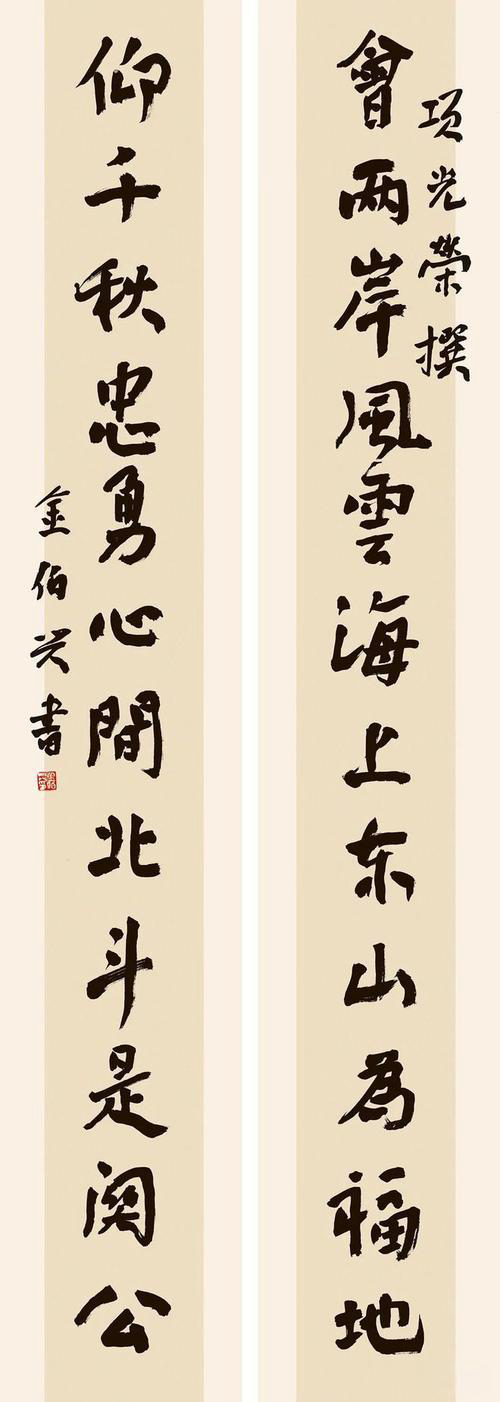 項光榮撰
會两岸風雲海上东山為福地
仰千秋忠勇心間北斗是関公
金伯兴書